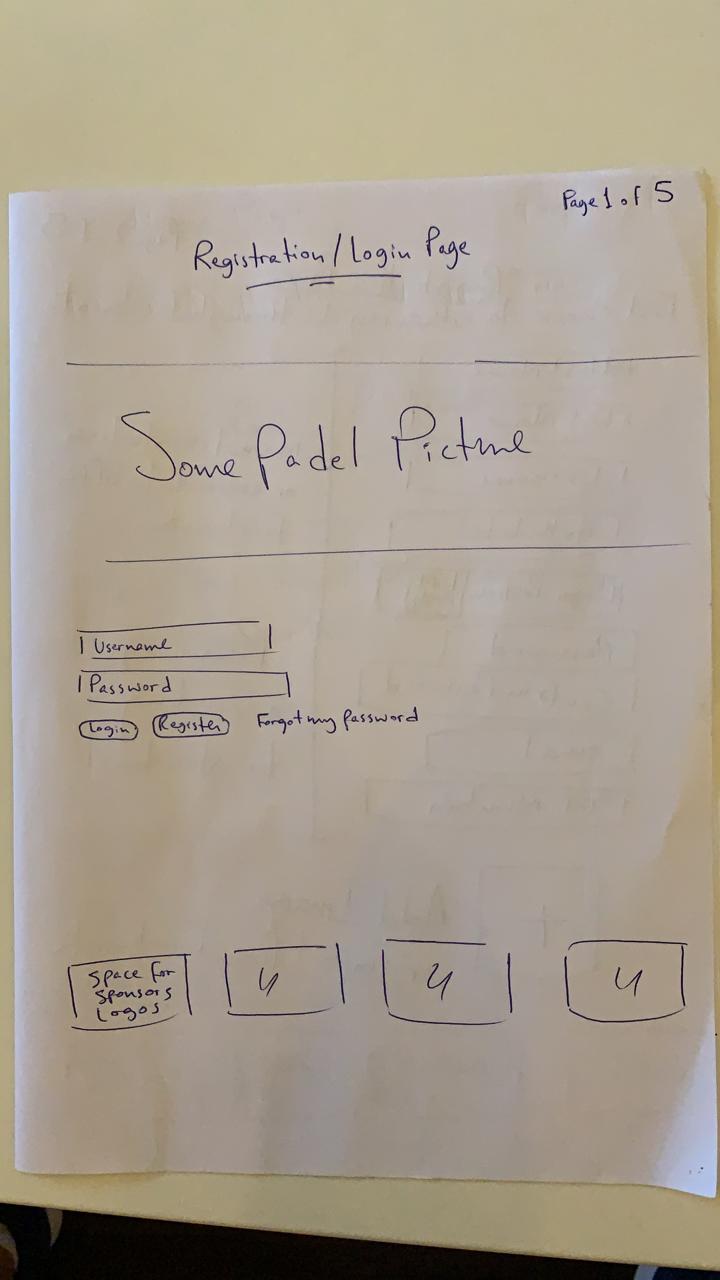 Page 1 of 5
Registration / Login Page
Some Padel Picture
Username
Password
Login Register Forgot my password
Space for
Sponsors
Logos